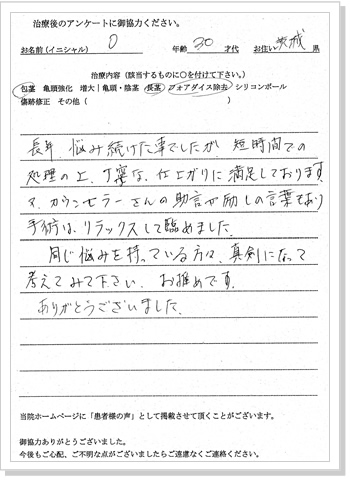 治療後のアンケートに御協力ください。
お名前(イニシャル) O 年齢 30 才代 お住い 茨城 県
治療内容(該当するものに○を付けて下さい。)
包茎 亀頭強化 増大(亀頭・陰茎 長茎 フォアダイス除去 シリコンボール
傷跡修正 その他( )
長年、悩み続けた事でしたが、短時間での
処理の上、丁寧な仕上がりに満足しております。
又、カウンセラーさんの助言や励しの言葉もあり
手術は、リラックスして臨めました。
同じ悩みを持っている方は、真剣になって
考えてみて下さい。お推めです。
ありがとうございました。
当院ホームページに「患者様の声」として掲載させて頂くことがございます。
御協力ありがとうございました。
今後もご心配、ご不明な点がございましたらご遠慮なくご連絡ください。